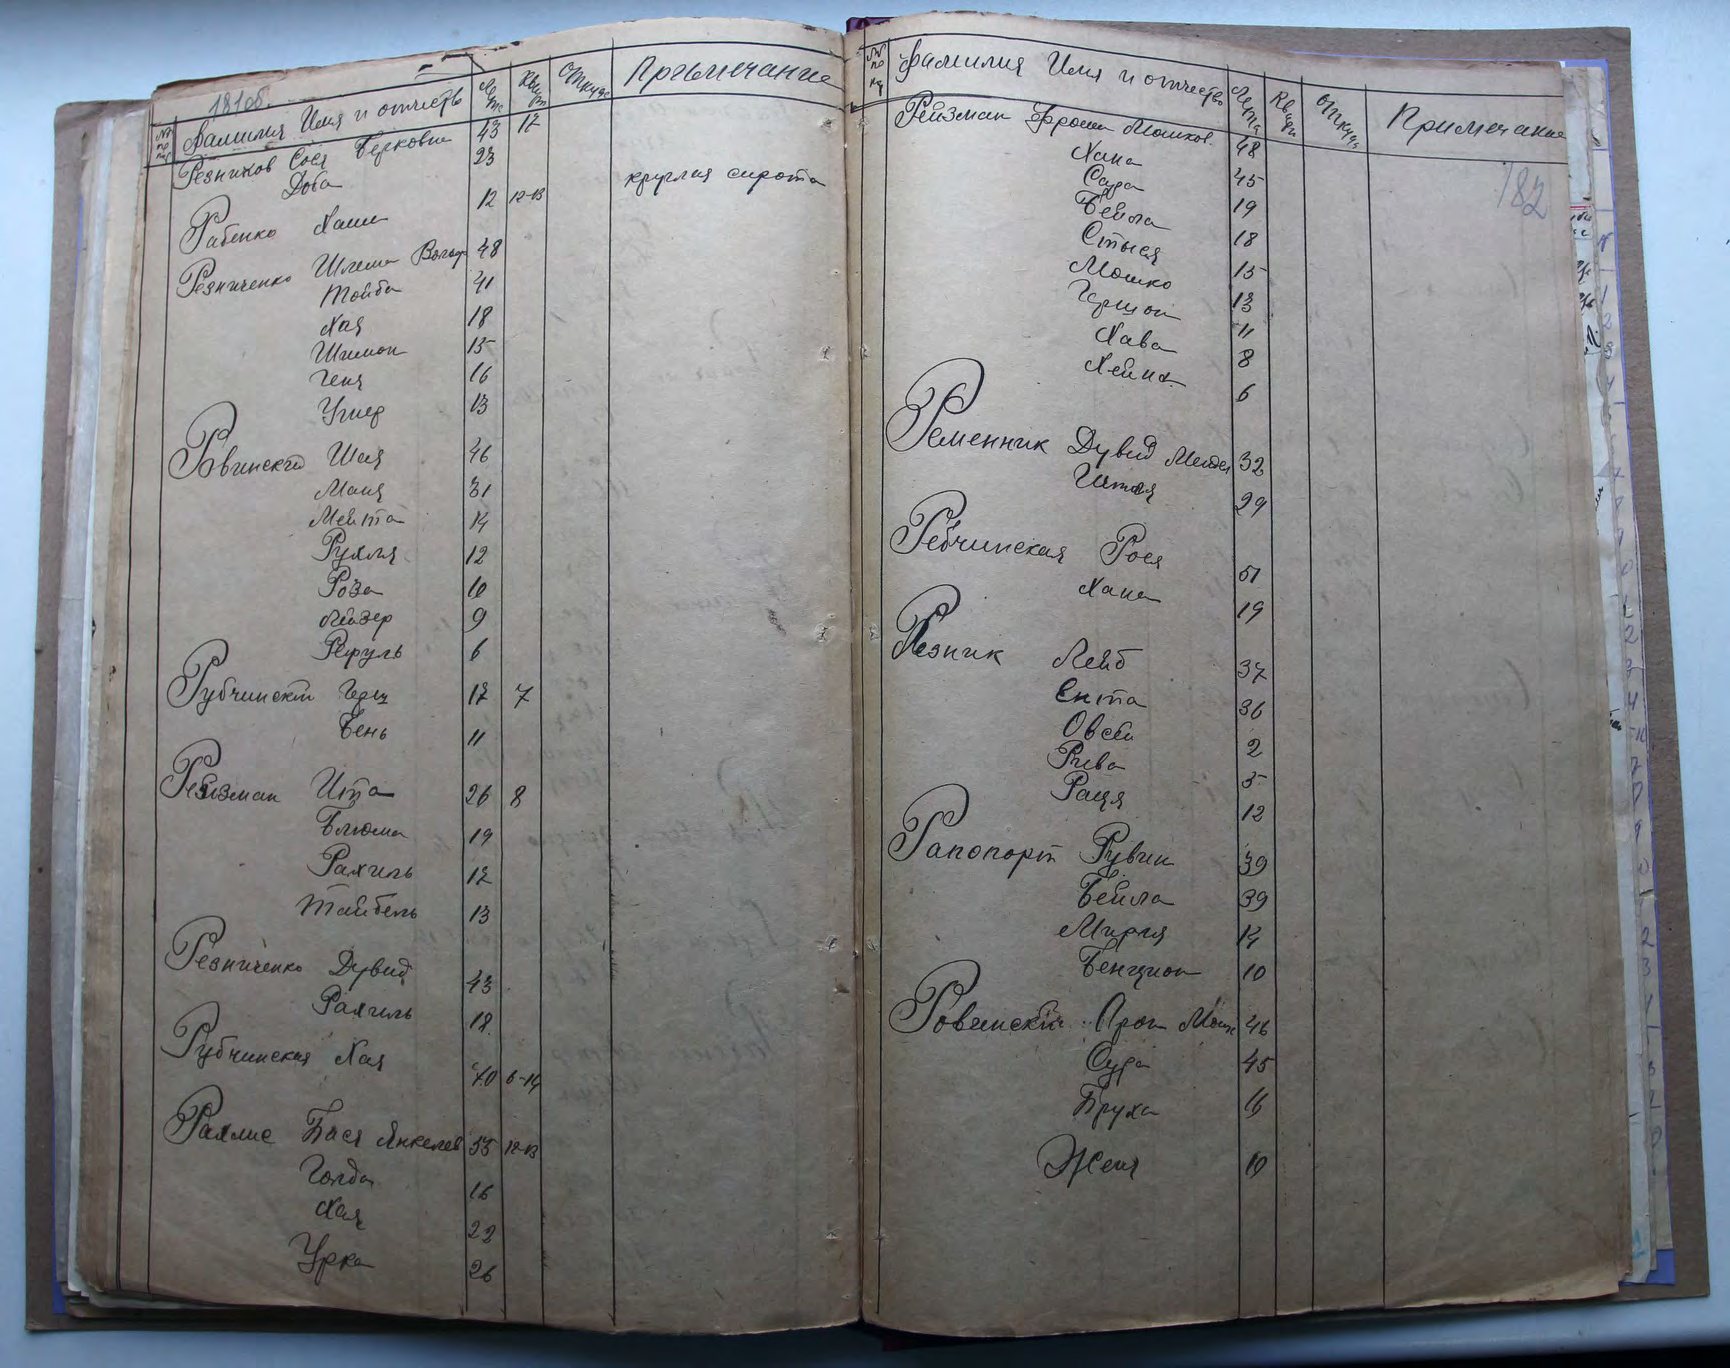 181 об.
№№ по пор Фамилия Имя и отчество Лета Кварт Откуда Примечание
Резников Сося Берковна 43 12
Доба 23
Рабенко Хаим 12 12-13 круглая сирота
Резниченко Шлема Вольф 48
Тойба 41
Хая 18
Шимон 15
Геня 16
Ушер 13
Ровинский Шая 46
Маня 31
Мейта 14
Рухля 12
Роза 10
Лейзер 9
Рефуль 6
Рубчинский Герш 12 7
Бень 11
Рейзман Ита 26 8
Блюма 19
Рахиль 12
Тайбель 13
Резниченко Дувид 43
Рахиль 18
Рубчинская Хая 40 6-14
Рахлис Бася Янкелев 55 12-13
Голда 16
Хая 22
Урка 26
182
№№ по пор Фамилия Имя и отчество Лета Кварт Откуда Примечание
Рейзман Фроим Мошков. 48
Хана 45
Сура 19
Бейла 18
Стыся 15
Мошко 13
Гершон 11
Хава 8
Хейна 6
Ременник Дувид Мендел 32
Интя 29
Рёбчинская Рося 51
Хана 19
Резник Лейб 37
Ента 36
Овсей 2
Рива 5
Рация 12
Рапопорт Рувин 39
Бейла 39
Мирля 14
Бенцион 10
Ровинский Арон Мошк 46
Сура 45
Бруха 16
Женя 10